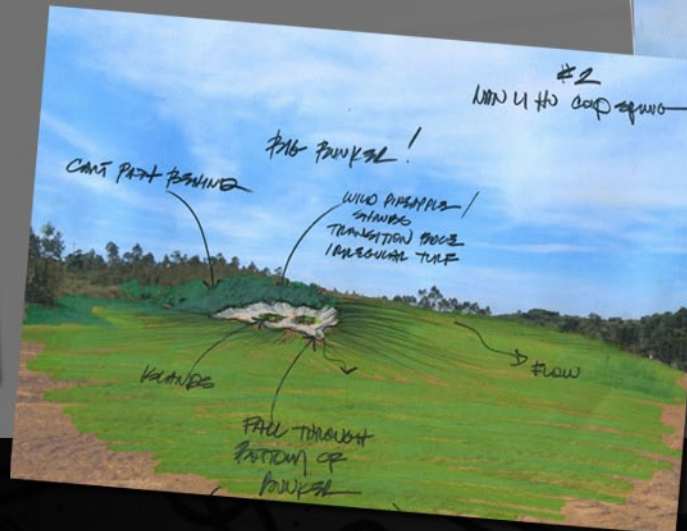 #2
BIG BUNKER!
CART PATH BEHIND
WILD PINEAPPLE /
TRANSITION
IRREGULAR TURF
ISLANDS
FLOW
FALL THROUGH
BOTTOM OF
BUNKER